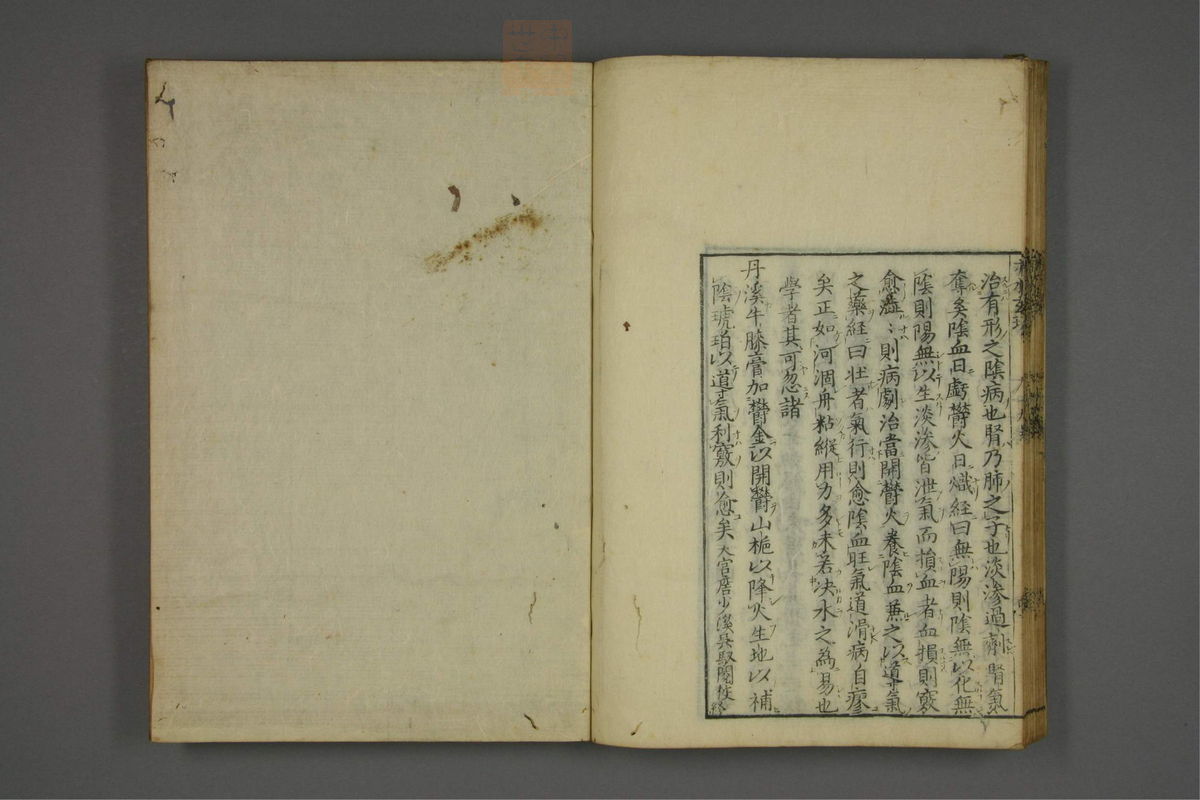 治有形之陰病也腎乃肺之子也淡滲過劑腎氣
奪矣陰血日虧欝火日熾經曰無陽則陰無以化無
陰則陽無以生淡滲皆泄氣而損血者血損則竅
愈澁澁則病劇治當開欝火養陰血兼之以道氣
之藥經曰壮者氣行則愈陰血旺氣道滑病自瘳
矣正如河涸舟粘縱用力多未若决水之為易也
學者其可忽諸
丹溪牛膝膏加欝金以開欝山梔以降火生地以補
陰琥珀以道氣利竅則愈矣